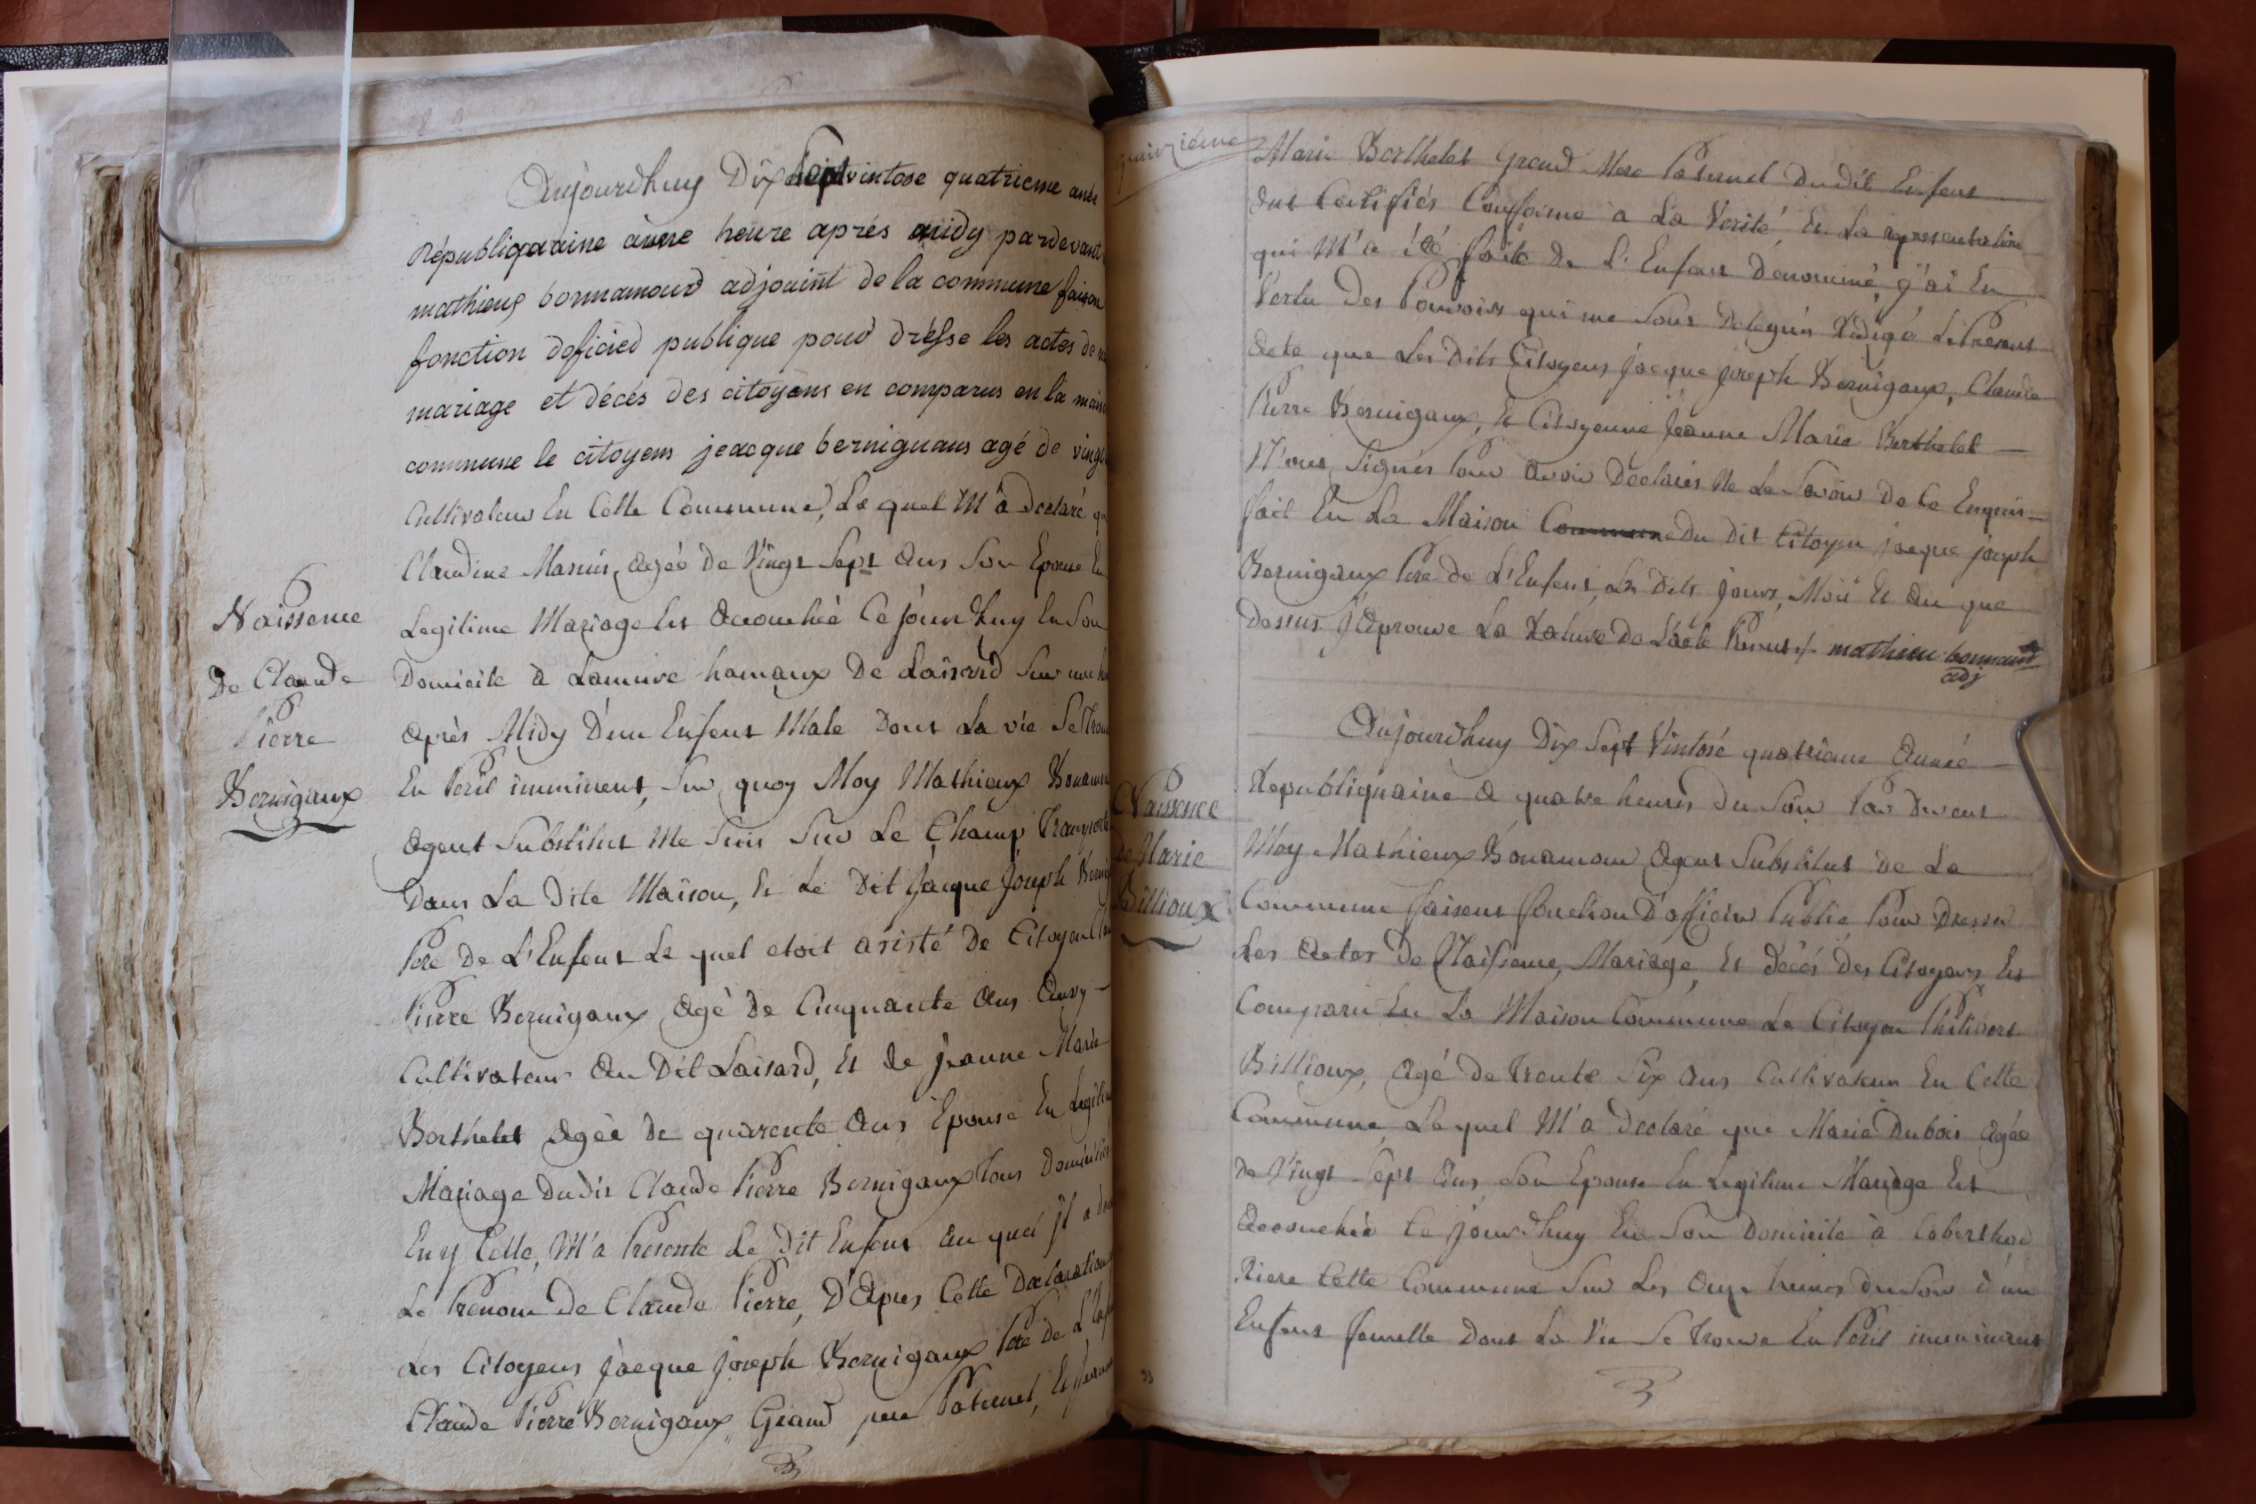 Aujourdhuy Dix Sept vintose quatrieme année
Républiquaine à une heure aprés midy pardevant
mathieux bonnamour adjouint de la commune faison
fonction doficied publique pour drésse les actes de
mariage et décés des citoyens en comparus en la maison
commune le citoyens jeacque berniguaus agé de vingt
Cultivateur En Cette Commune, Le quel M'a Declaré que
Claudine agée De Vingt Sept Ans Son Epouse En
Legitime Mariage Est Accouchée Ce jourdhuy En Son
Domicile à Lamure hamaux De Laisard Sur une heure
Après Midy D'un Enfent Male Dont La vie Se Trouve
En Peril imminent, Sur quoy Moy Mathieux Bonamour
Agent Substitut Me Suis Sur Le Champ Transporté
Dans La Dite Maison, Et Le Dit Jacque Joseph
Pere De L'Enfent Le quel etoit assisté De Citoyen
Pierre Bernigaux Agé De Cinquante Ans Aussy
Cultivateur Au Dit Laisard, Et De Jeanne Marie
Berthelet Agée De quarente Ans Epouse En Legitime
Mariage Dudit Claude Pierre Bernigaux Tous Domiciliés
En y Celle, M'a Presenté Le Dit Enfent Au quel jl a
Le Prenom De Claude Pierre, D'Apres Cette Declaration
Les Citoyens Jacque Joseph Bernigaux Pere De L'Enfent
Claude Pierre Bernigaux Grand pere Paternel, Et Jeanne
Naissence
De Claude
Pierre
Bernigaux
quinzieme
Marie Berthelet Grand Mere Paternel Dudit Enfent
Ont Certifiés Conforme a La Verité Et La representation
qui M'a été faite De L'Enfent Dénommé, j'ai En
Vertu Des Pouvoirs qui me Sont Delegués Redigé Le Present
Acte que Les Dits Citoyens Jacque Joseph Bernigaux, Claude
Pierre Bernigaux, Et Citoyenne Jeanne Marie Berthelet
N'ont Signés Pour Avoir Declarés Ne Le Savoir De Ce Enquis
fait En La Maison Commune Du Dit Citoyen jacque joseph
Bernigaux Pere De L'Enfent, Les Dits Jours, Mois Et An que
Dessus J'Aprouve La Rature De L'acte Present mathieu bonnamour
adj
Naissence
De Marie
Billioux
Aujourdhuy Dix Sept Vintose quatrieme Année
Republiquaine a quatre heures Du Soir Par Devent
Moy Mathieux Bonamour Agent Substitut De La
Commune faisent fonction D'officier Public Pour Dresser
Les Actes De Naissence, Mariage, Et Décés Des Citoyens Est
Comparu En La Maison Commune Le Citoyen Philibert
Billioux, Agé De Trente Six Ans Cultivateur En Cette
Commune, Lequel M'a Declaré que Marie Dubois Agée
De Vingt Sept Ans Son Epouse En Legitime Mariage Est
Accouchée Ce jourdhuy En Son Domicile à
Riere Cette Commune Sur Les Onze heures Du Soir d'un
Enfent femelle Dont La Vie Se Trouve En Peril imminent